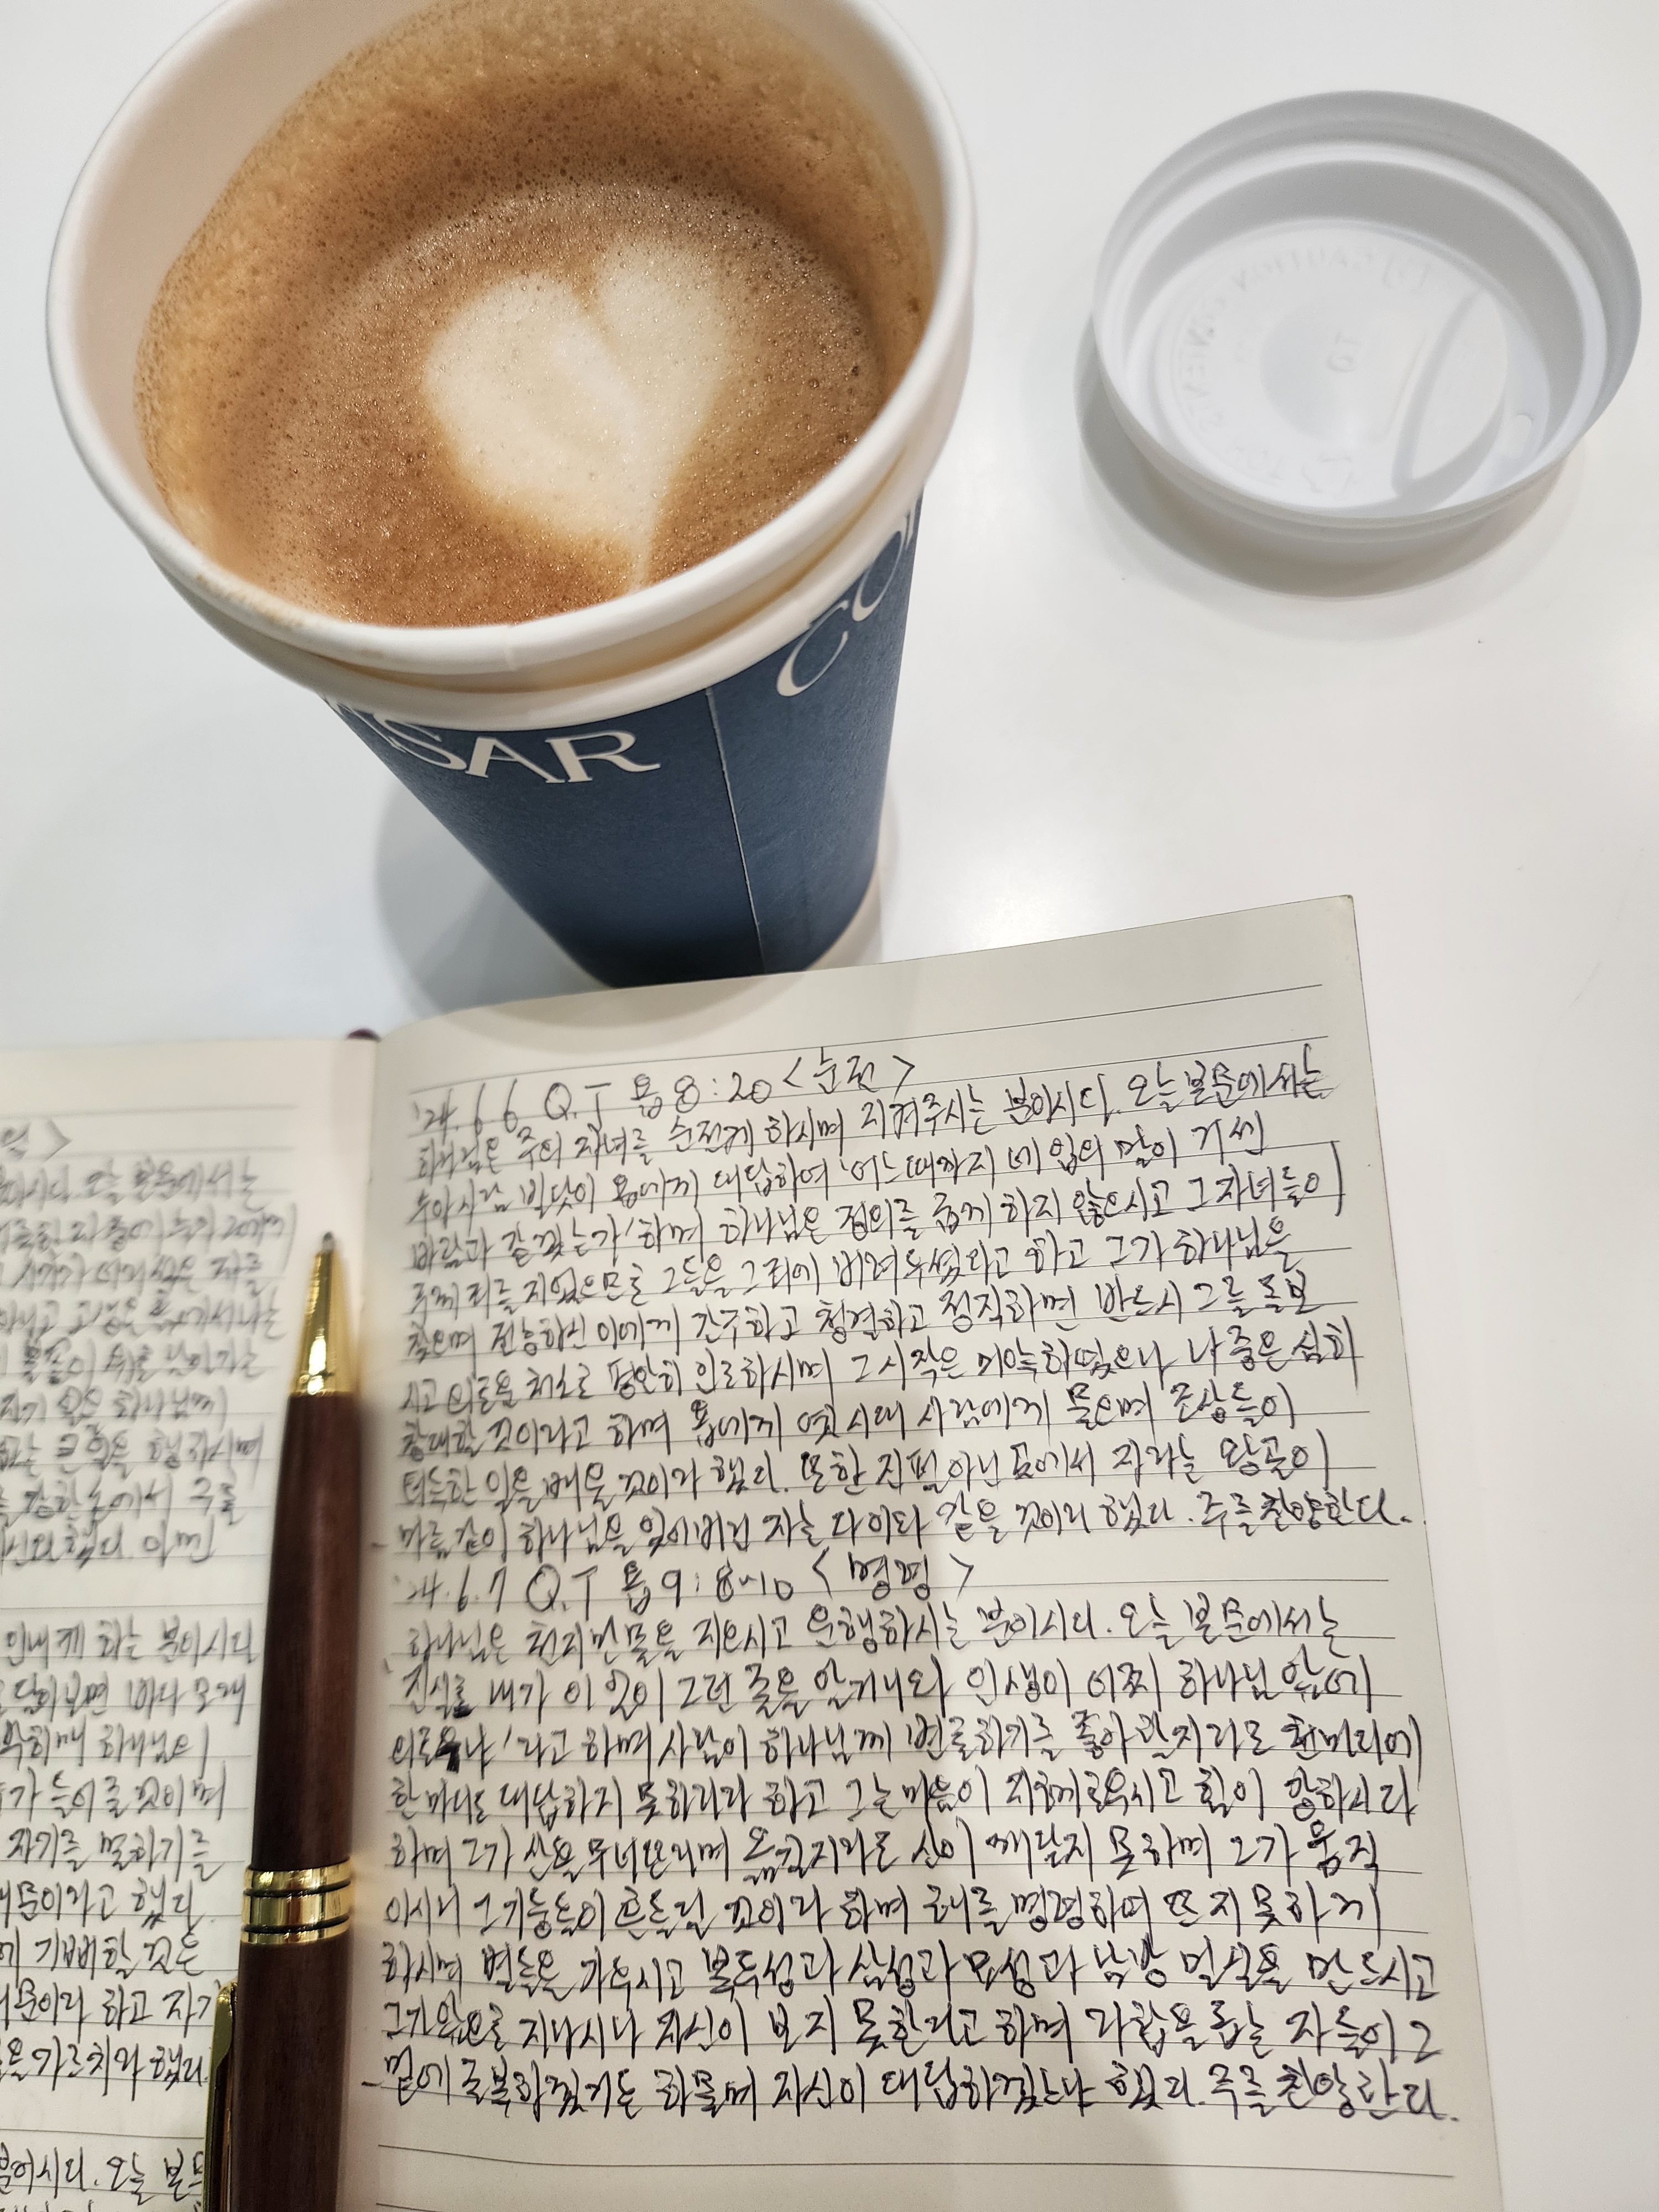 SAR
CO
'24.6.6 Q.T 욥8:20 <순전>
하나님은 주의 자녀를 순전케 하시며 지켜주시는 분이시다. 오늘 본문에서는
수아사람 빌닷이 욥에게 대답하여 '어느때까지 네 입의 말이 거센
바람과 같겠는가' 하며 하나님은 정의를 굽게 하지 않으시고 그 자녀들이
주께 죄를 지었으므로 그들을 그 죄에 버려두셨다고 하고 그가 하나님을
찾으며 전능하신 이에게 간구하고 청결하고 정직하면 반드시 그를 돌보
시고 의로운 처소로 평안히 인도하시며 그 시작은 미약하였으나 나중은 심히
창대할 것이라고 하며 욥에게 옛 시대 사람에게 물으며 조상들이
터득한 일을 배울 것이라 했다. 또한 진펄 아닌 곳에서 자라는 왕골이
마름같이 하나님을 잊어버린 자는 다 이와 같을 것이라 했다. 주를 찬양한다.
'24.6.7 Q.T 욥9:8~10 <명령>
하나님은 천지만물을 지으시고 운행하시는 분이시다. 오늘 본문에서는
'진실로 내가 이 일이 그런 줄을 알거니와 인생이 어찌 하나님 앞에
의로우랴'라고 하며 사람이 하나님께 변론하기를 좋아할지라도 천마디에
한마디도 대답하지 못하리라 하고 그는 마음이 지혜로우시고 힘이 강하시다
하며 그가 산을 무너뜨리며 옮길지라도 산이 깨닫지 못하며 그가 움직
이시니 그 기둥들이 흔들릴 것이라 하며 해를 명령하여 뜨지 못하게
하시며 별들을 가두시고 북두성과 삼성과 묘성과 남방 밀실을 만드시고
그가 앞으로 지나시나 자신이 보지 못한다고 하며 라합을 돕는 자들이 그
밑에 굴복하겠거든 하물며 자신이 대답하겠느냐 했다. 주를 찬양한다.
오늘 본문에서는
하나님께
행하시며
손에서 구출
인내케 하는 분이시다
달아보면 바다 모래
하나님이
자기를 멸하기를
때문이라고 했다
기뻐할 것은
때문이라 하고
가르치라 했다.
분이시다. 오늘